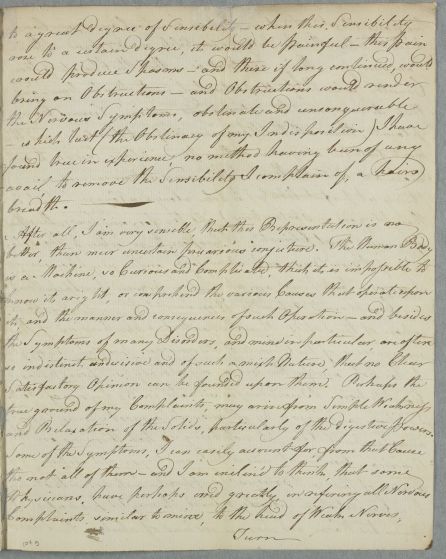 to a great degree of Sensibility – when this Sensibility
rose to a certain degree, it would be painful – this pain
would produce Spasms – and these if long continued, would
bring on Obstructions – and Obstructions would render
the Nervous Symptoms, obstinate and unconquerable
– which last (the Obstinacy of my Indisposition) I have
found true in experience, no method having been of any
avail to remove the Sensibility I complain of, a hairs
breadth. –
After all, I am very sensible that this Representation is no
better than mere uncertain precarious conjecture. The Human Body
is a Machine, so Curious and Complicated that it is impossible to
know it aright, or comprehend the various Causes that operate upon
it, and the manner and consequences of such Operation – and besides
the Symptoms of many Disorders, and mine in particular, are often
so indistinct and of such a mixt Nature, that no Clear
Satisfactory Opinion can be founded upon them. Perhaps the
true ground of my Complaints, may arise from Simple Weakness
and Relaxation of the Solids, particularly of the Digestive Powers.
Some of the Symptoms, I can easily account for from that Cause
tho not all of them – and I am inclin'd to think that some
Physicians, have perhaps err'd greatly in referring all Nervous
Complaints similar to mine, to the head of Weak Nerves,
Turn